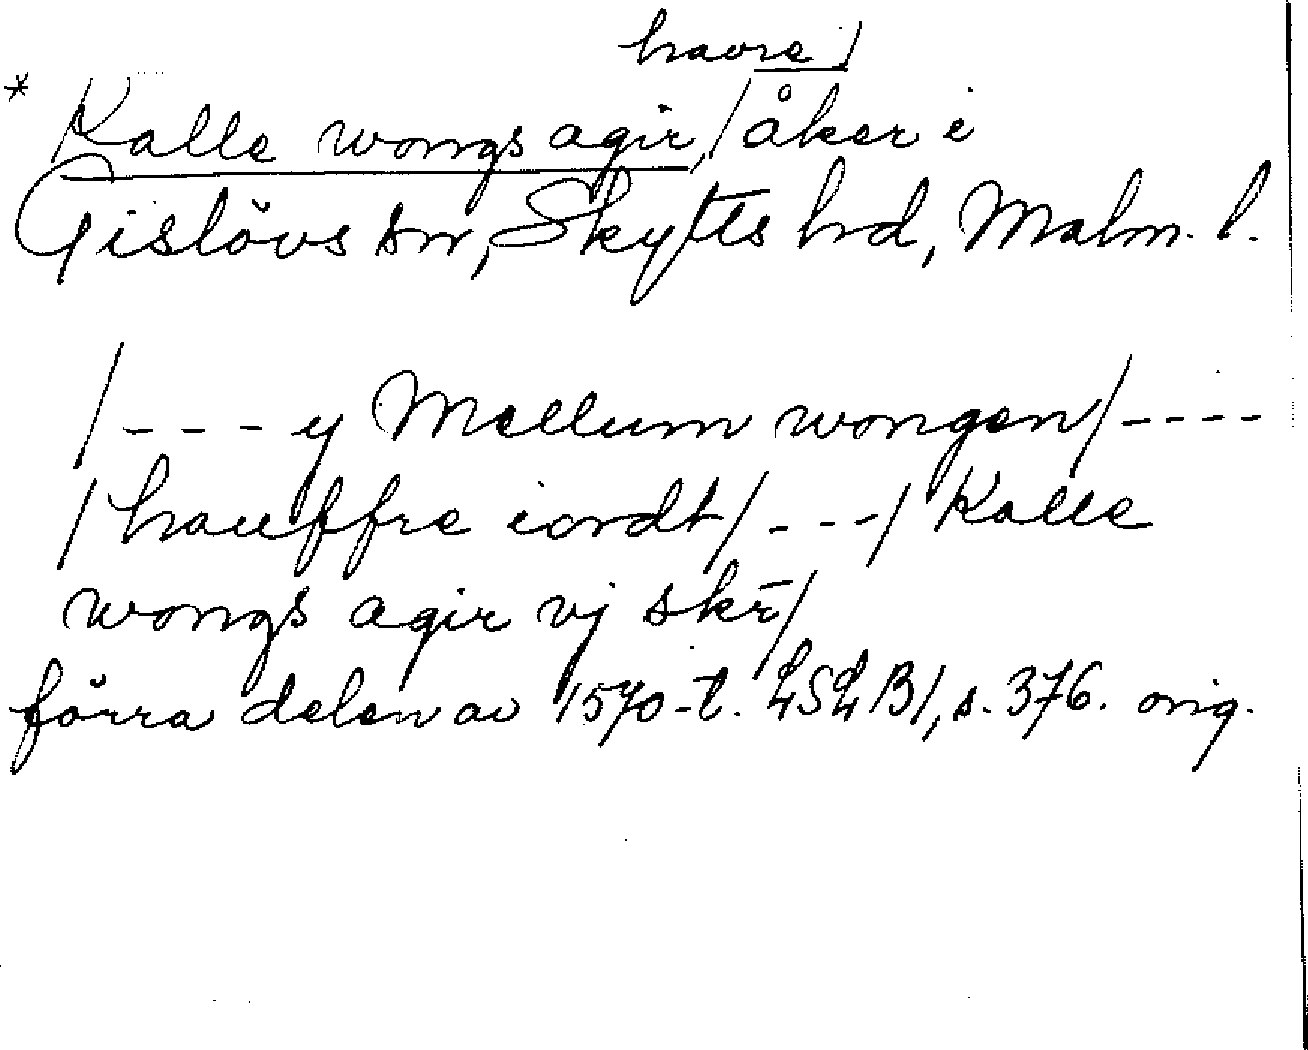 havre/
* /Kalle wongs agir,/ åker i
Gislövs sn, Skytts hd, Malm. l.
/- - - y Mellum wongen/- - - -
/hauffre iordt/- - -/ Kalle
wongs agir vj skr̄/
förra delen av 1570-t. LSLB1, s. 376. orig.